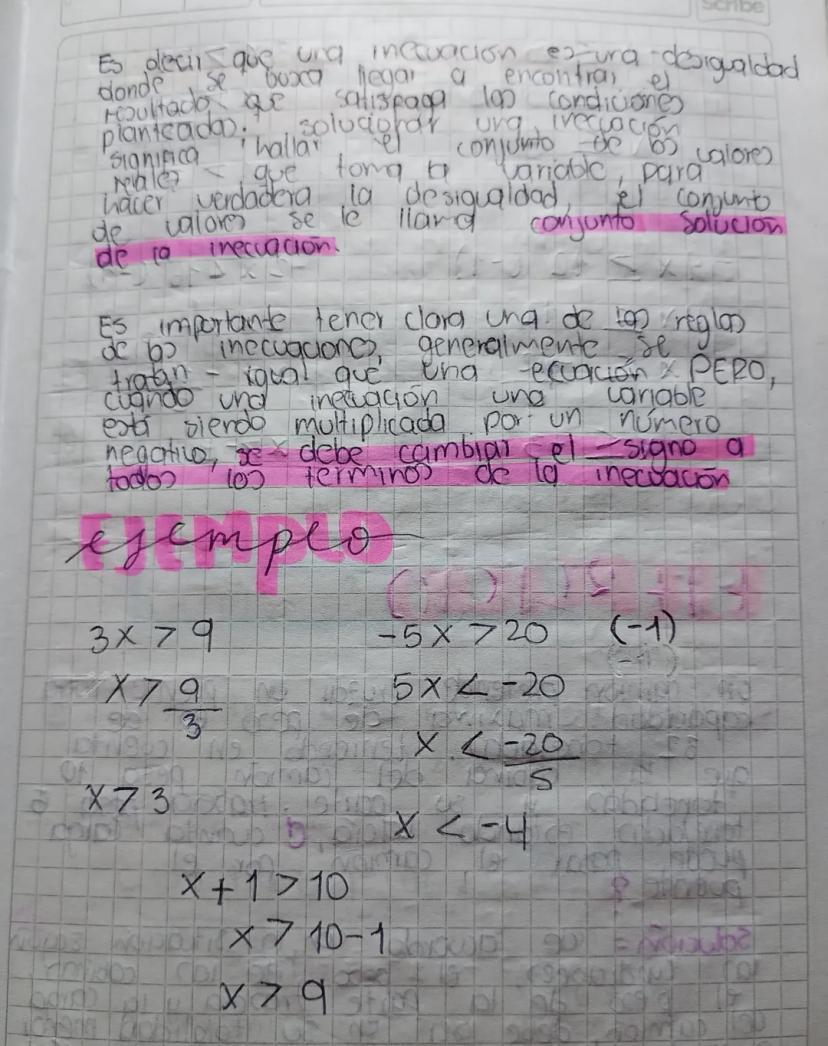 Scribe
Es decir que una inecuación es una desigualdad
donde se busca llegar a encontrar el
resultado que satisfaga las condiciones
planteadas; solucionar una inecuación
significa hallar el conjunto de los valores
reales que toma la variable, para
hacer verdadera la desigualdad, el conjunto
de valores se le llama conjunto solución
de la inecuación.
Es importante tener clara una de las reglas
de las inecuaciones, generalmente se
tratan igual que una ecuación PERO,
cuando una inecuación una variable
está siendo multiplicada por un número
negativo, se debe cambiar el signo a
todos los terminos de la inecuación
EJEMPLO
3x > 9
-5x > 20 (-1)
x > 9/3
5x < -20
x < -20/5
x > 3
x < -4
x + 1 > 10
x > 10 - 1
x > 9